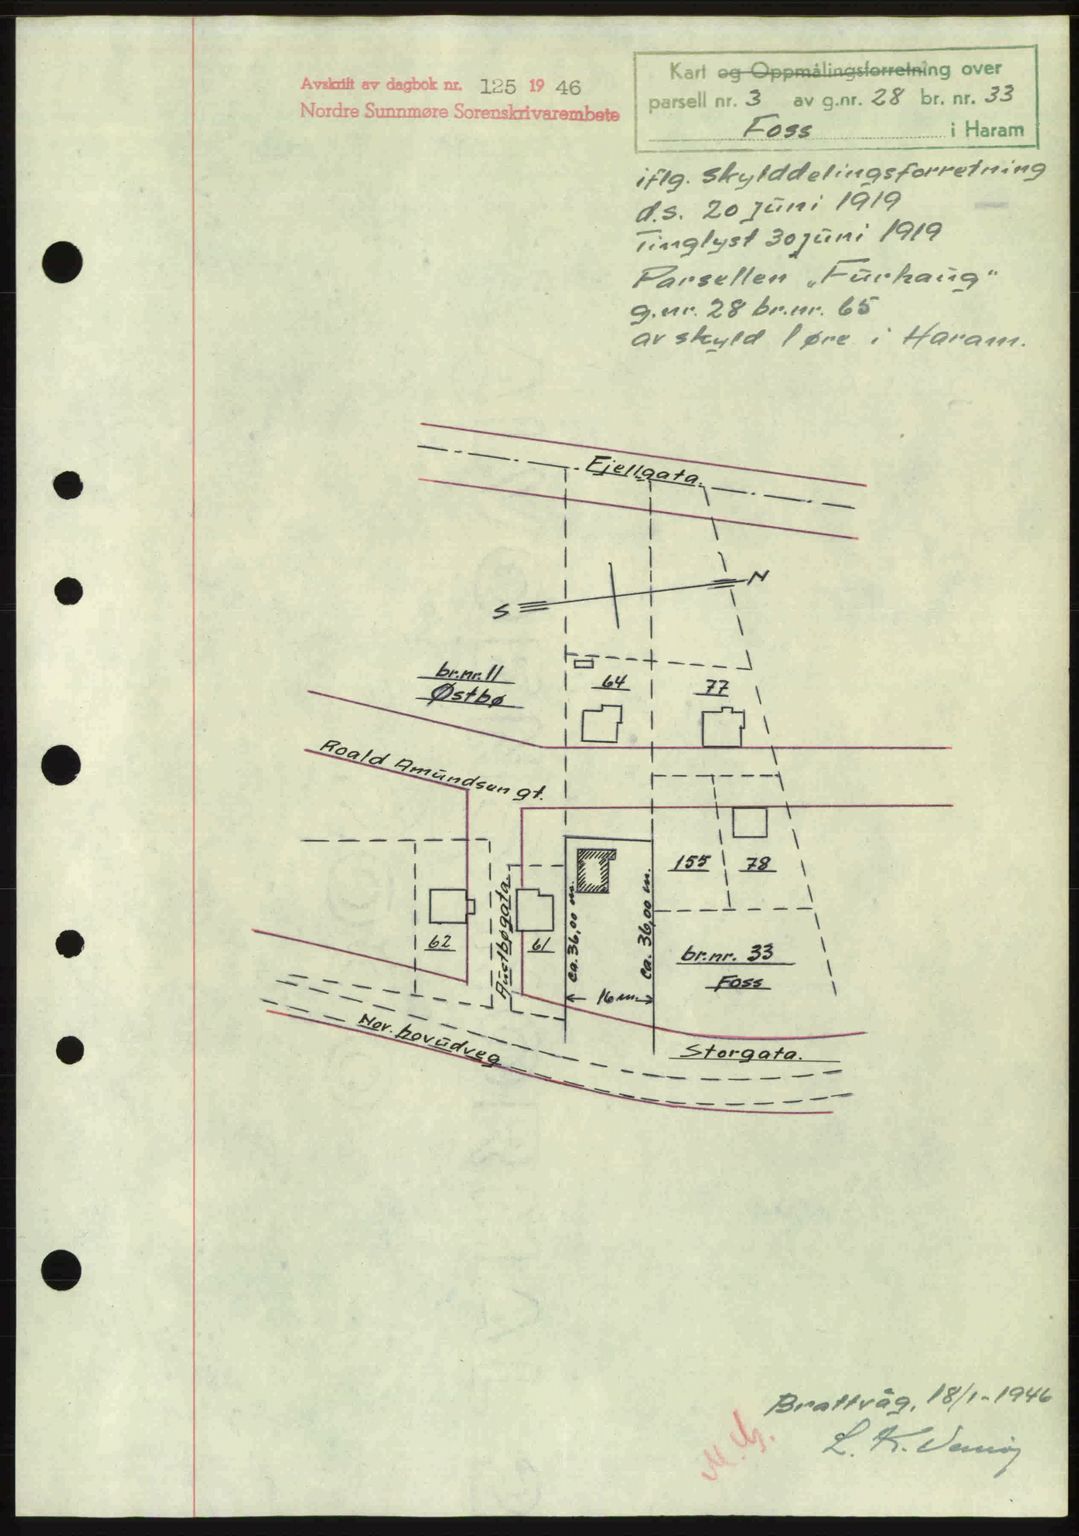 Avskrift av dagbok nr. 125 19 46
Nordre Sunnmøre Sorenskrivarembete
Kart og Oppmålingsforretning over
parsell nr. 3 av g.nr. 28 br. nr. 33
Foss i Haram
iflg. skylddelingsforretning
d.s. 20 juni 1919
Tinglyst 30 juni 1919
Parsellen „Furhaug"
g.nr. 28 br.nr. 65
av skyld 1 øre i Haram.
Fjellgata.
N
S
br.nr. 11
Østbø
64
77
Roald Amundsen gt.
155
78
62
Austbøgata.
61
ca. 36,00 m.
ca. 36,00 m.
16 m
br.nr. 33
Foss
Nov. hovudveg
Storgata.
Brattvåg, 18/1-1946
L. K.